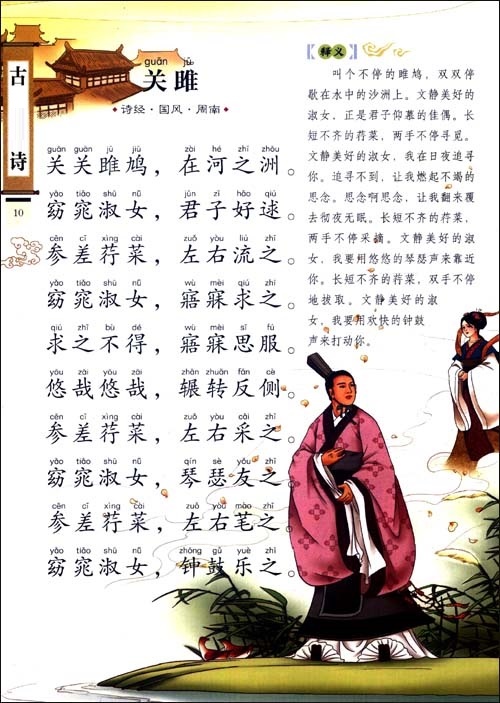 古诗
10
guān jū
关雎
·诗经·国风·周南·
guān guān jū jiū zài hé zhī zhōu
关关雎鸠，在河之洲。
yǎo tiǎo shū nǚ jūn zǐ hǎo qiú
窈窕淑女，君子好逑。
cēn cī xìng cài zuǒ yòu liú zhī
参差荇菜，左右流之。
yǎo tiǎo shū nǚ wù mèi qiú zhī
窈窕淑女，寤寐求之。
qiú zhī bù dé wù mèi sī fú
求之不得，寤寐思服。
yōu zāi yōu zāi zhǎn zhuǎn fǎn cè
悠哉悠哉，辗转反侧。
cēn cī xìng cài zuǒ yòu cǎi zhī
参差荇菜，左右采之。
yǎo tiǎo shū nǚ qín sè yǒu zhī
窈窕淑女，琴瑟友之。
cēn cī xìng cài zuǒ yòu mào zhī
参差荇菜，左右芼之。
yǎo tiǎo shū nǚ zhōng gǔ yuè zhī
窈窕淑女，钟鼓乐之。
【释义】
叫个不停的雎鸠，双双停
歇在水中的沙洲上。文静美好的
淑女，正是君子仰慕的佳偶。长
短不齐的荇菜，两手不停寻觅。
文静美好的淑女，我在日夜追寻
你。追寻不到，让我燃起不竭的
思念。思念啊思念，让我翻来覆
去彻夜无眠。长短不齐的荇菜，
两手不停采摘。文静美好的淑
女，我要用悠悠的琴瑟声来靠近
你。长短不齐的荇菜，双手不停
地拔取。文静美好的淑
女，我要用欢快的钟鼓
声来打动你。